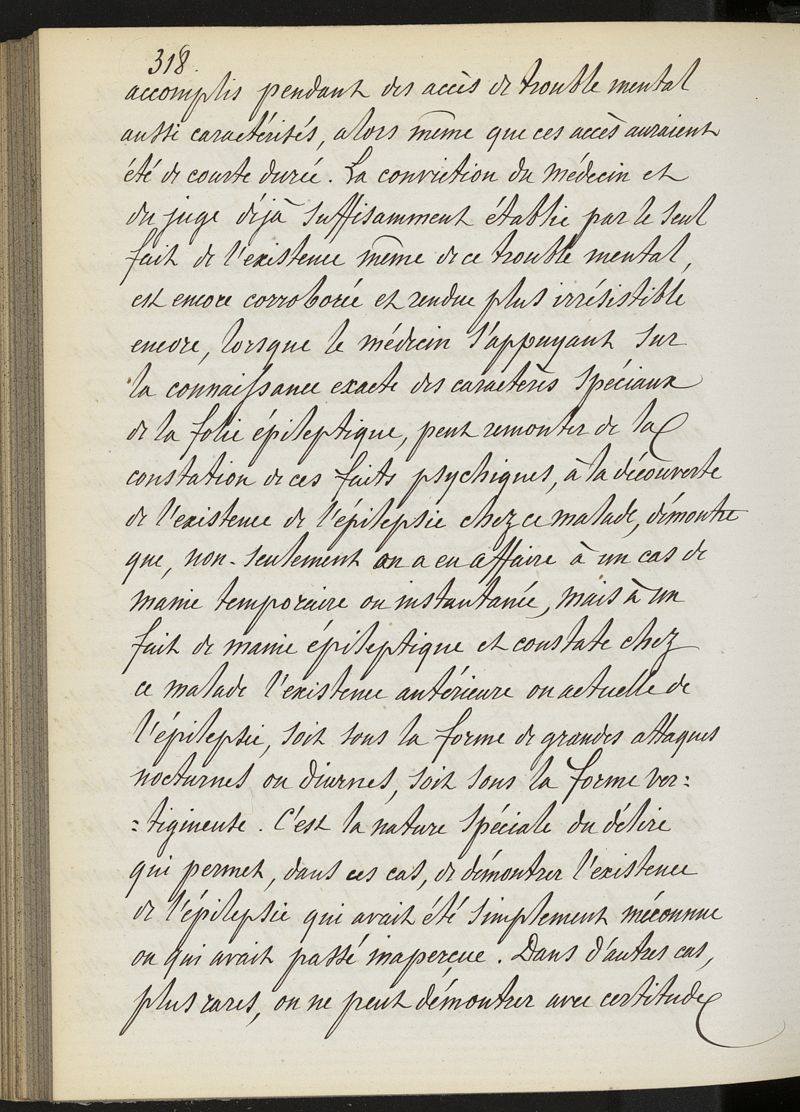 318.
accomplis pendant des accès de trouble mental
aussi caractérisés, alors même que ces accès auraient
été de courte durée. La conviction du médecin et
du juge déjà suffisamment établie par le seul
fait de l'existence même de ce trouble mental,
est encore corroborée et rendue plus irrésistible
encore, lorsque le médecin s'appuyant sur
la connaissance exacte des caractères spéciaux
de la folie épileptique, peut remonter de la
constation de ces faits psychiques, à la découverte
de l'existence de l'épilepsie chez ce malade, démontre
que, non-seulement on a eu affaire à un cas de
manie temporaire ou instantanée, mais à un
fait de manie épileptique et constate chez
ce malade l'existence antérieure ou actuelle de
l'épilepsie, soit sous la forme de grandes attaques
nocturnes ou diurnes, soit sous la forme ver=
=tigineuse. C'est la nature spéciale du délire
qui permet, dans ces cas, de démontrer l'existence
de l'épilepsie qui avait été simplement méconnue
ou qui avait passé inaperçue. Dans d'autres cas,
plus rares, on ne peut démontrer avec certitude